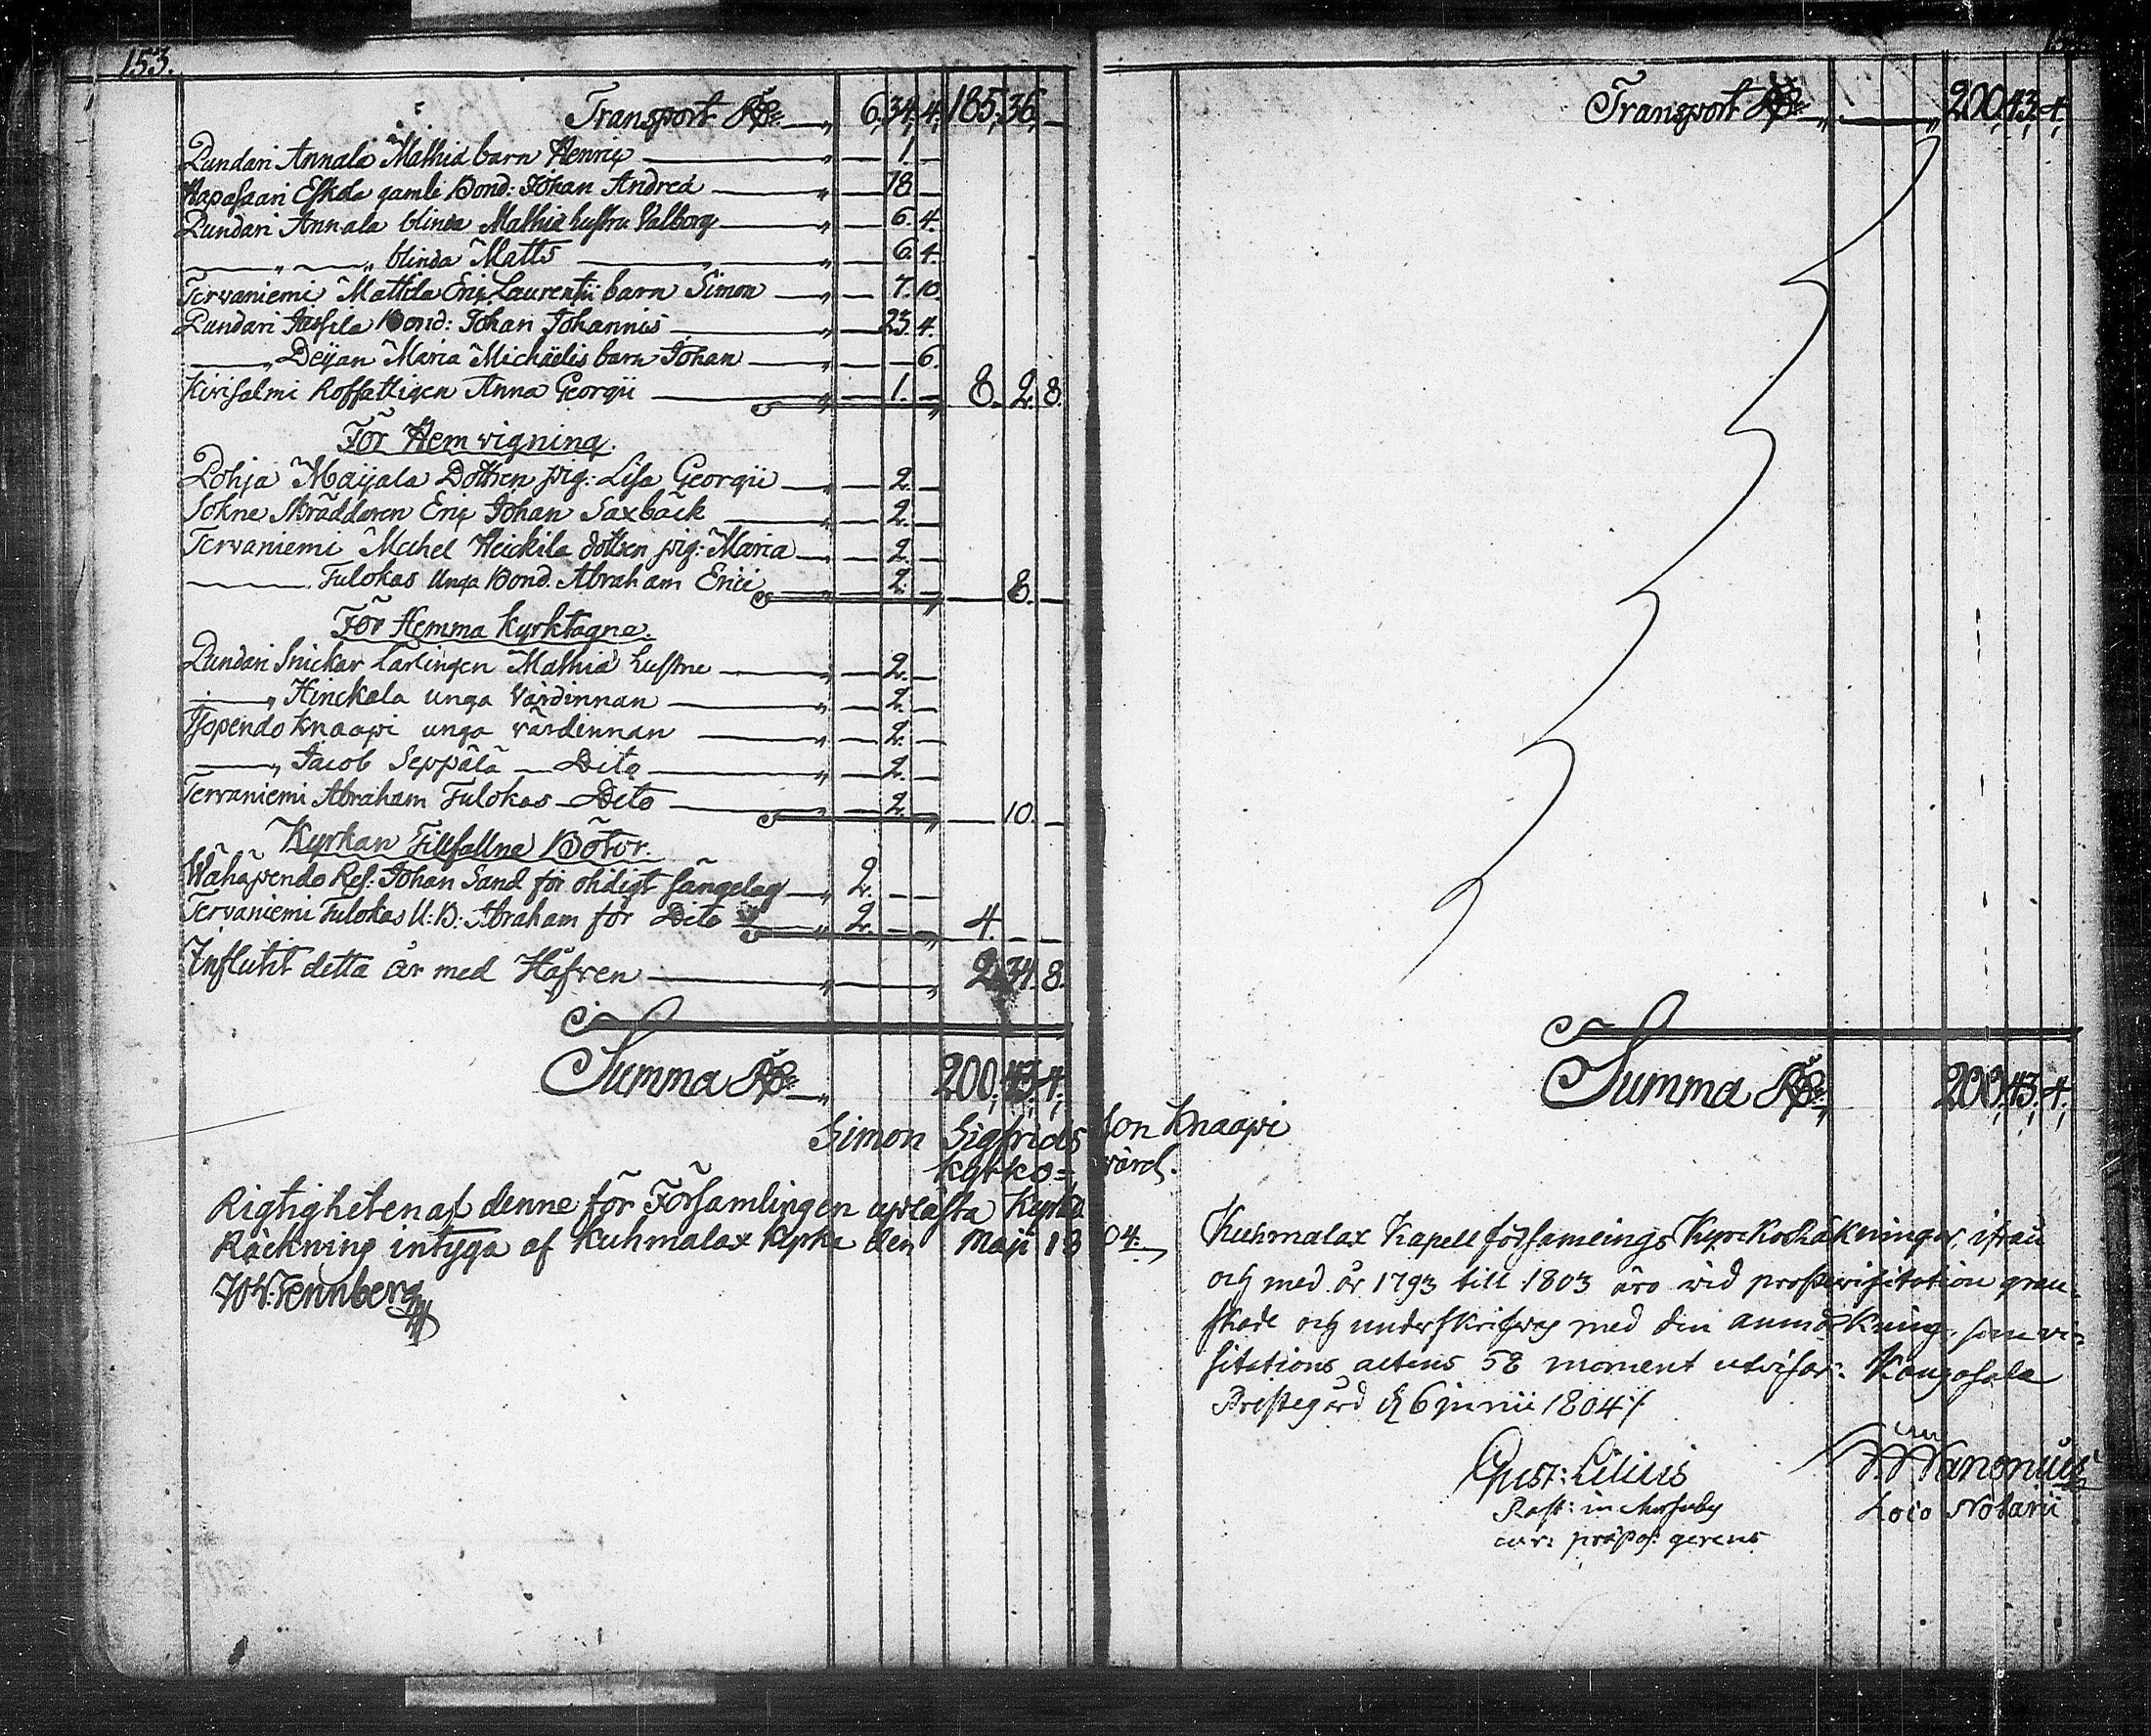 153.
Transport RD:r „ 6. 34. 4. 185. 36. —
Pundari Annala Mathiæ barn Henric — „ — 1. —
Hapasaari Eskola gamle Bond: Johan Andreæ — „ — 18 —
Pundari Annala blinda Mathiæ hustru Valborg — „ — 6. 4.
— „ — „ blinda Matts — „ — „ — 6. 4.
Tervaniemi Mattila Eric Laurentii barn Simon — „ — 7. 10.
Pundari Jussila Bond: Johan Johannis — „ — 23. 4.
— „ Deijan Maria Michäelis barn Johan — „ — — 6.
Kirisalmi Anna Georgii — „ — 1. — 8. 2. 8.
För Hemvigning.
Pohja Maijala Dottren pig: Lisa Georgii — „ — 2. —
Sokne Skräddaren Eric Johan Saxbäck — „ — 2. —
Tervaniemi Heickilä dottren pig: Maria — „ — 2. —
— Tulokas Unga Bond. Abraham Erici — „ — 2. — — 8. —
För Hemma Kyrktagne.
Pundari Snickar Lärlingen Mathiæ hustru — „ — 2. —
— „ Hinckala unga Värdinnan — „ — 2. —
Isopendo Knaapi unga värdinnan — „ — 2. —
— „ Jacob Seppälä — Dito — „ — 2. —
Tervaniemi Abraham Tulokas — Dito — „ — 2. — — 10. —
Kyrkan Tillfallne Böter.
Wähäpendo Res: Johan Sand för otidigt sängelag — „ 2. — —
Tervaniemi Tulokas U: B: Abraham för Dito — „ 2. — — 4. — —
Influtit detta år med Håfven — „ — „ 2. 34. 8.
Summa RD:r „ 200. 43. 4.
Simon Sigfridsson Knaapi
Kyrko-värd.
Rigtigheten af denne för Församlingen uplästa Kyrko
Räckning intyga af Kuhmalax Kyrka den Maji 1804.
Tennberg
Transport RD:r „ — „ 200. 43. 4.
Summa RD:r „ 200. 43. 4.
Kuhmalax Kapell församlings Kyrckoräkningar, ifrån
och med år 1793 till 1803 äro vid prosterisitation gran-
skade och underskrifvas med den anmärkning, som vi-
sitations actens 58 moment utvisar. Kangasala
Prestegård d. 6 junii 1804 ./.
Gust: Lilius
Past: in
cur: præpos: gerens
Wanonius
Loco Notarii